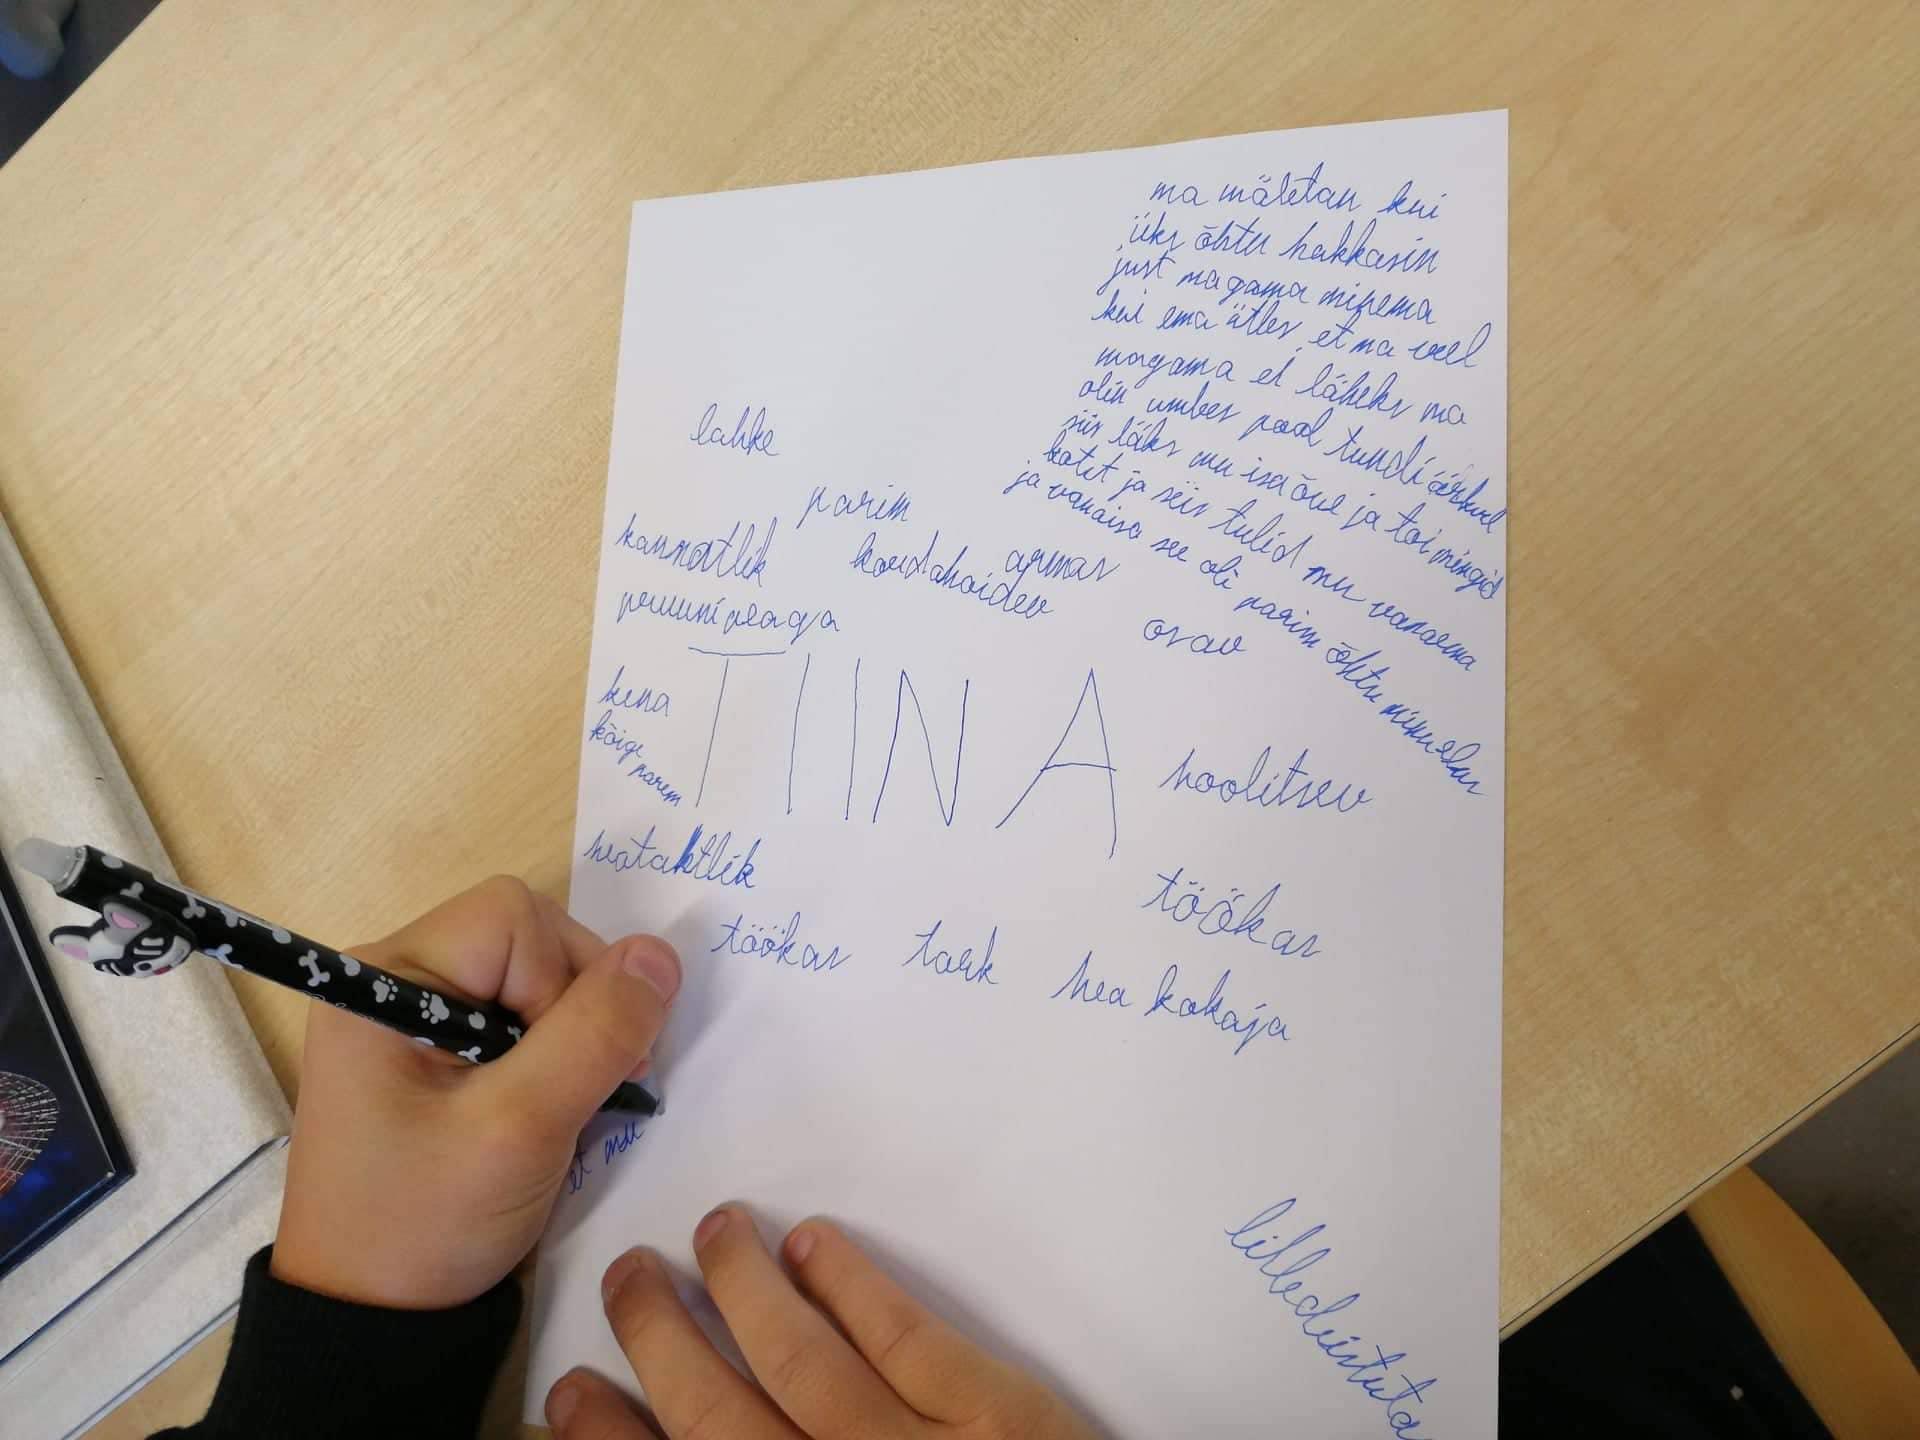 ma mäletan kui
üks õhtu hakkasin
just magama minema
kui ema ütles, et ma veel
magama ei läheks ma
olin umbes pool tundi ärkvel
siis läks mu isa õue ja toi mingid
kotit ja siis tulid mu vanaema
ja vanaisa see oli parim õhtu minu elus
lahke
parim
kannatlik
kordahoidev
armas
pruunipeaga
osav
kena
kõige
parem
TIINA
hoolitsev
heataktlik
töökas
töökas
tark
hea kokaja
et mu
lilledeistuta